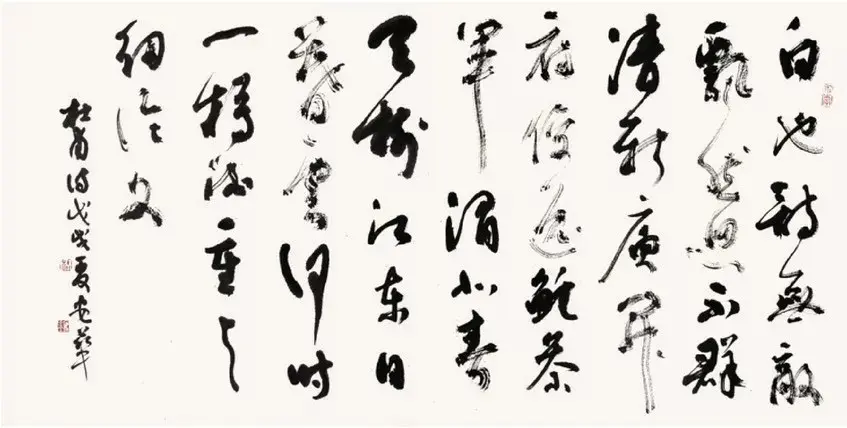 白也詩無敵
飄然思不群
清新庾開
府俊逸鲍参
軍渭北春
天樹江東日
暮雲何时
一樽酒重与
細論文
杜甫诗戊戌夏